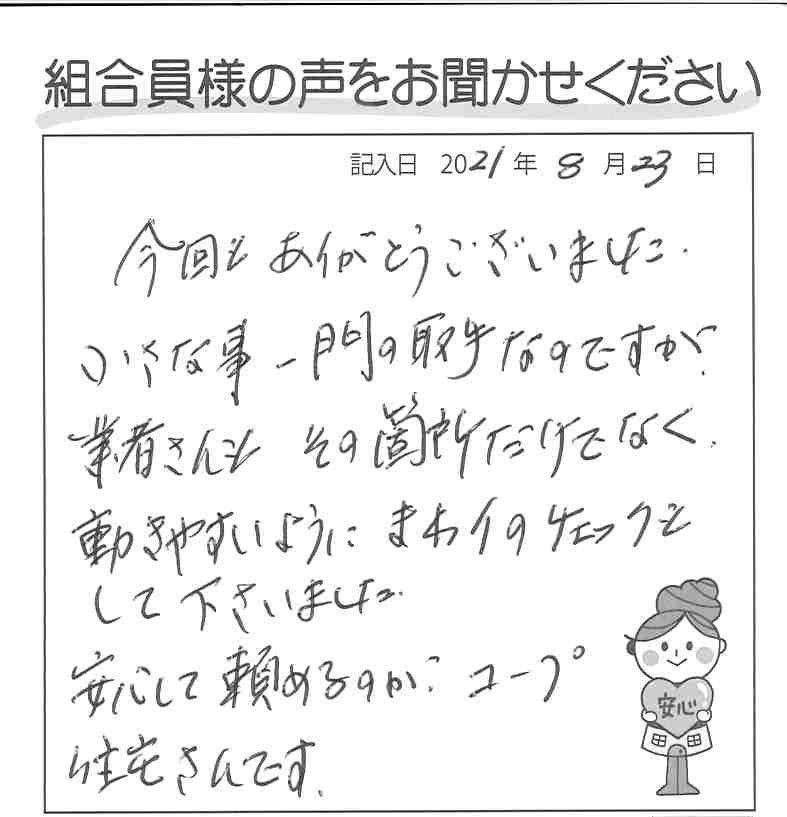 組合員様の声をお聞かせください
記入日 2021年 8月23日
今回も ありがとうございました.
小さな事 - 門の取手なのですが、
業者さんも その箇所だけでなく、
動きやすいように まわりのチェックも
して下さいました.
安心して頼めるのが、コープ
住宅さんです.
安心